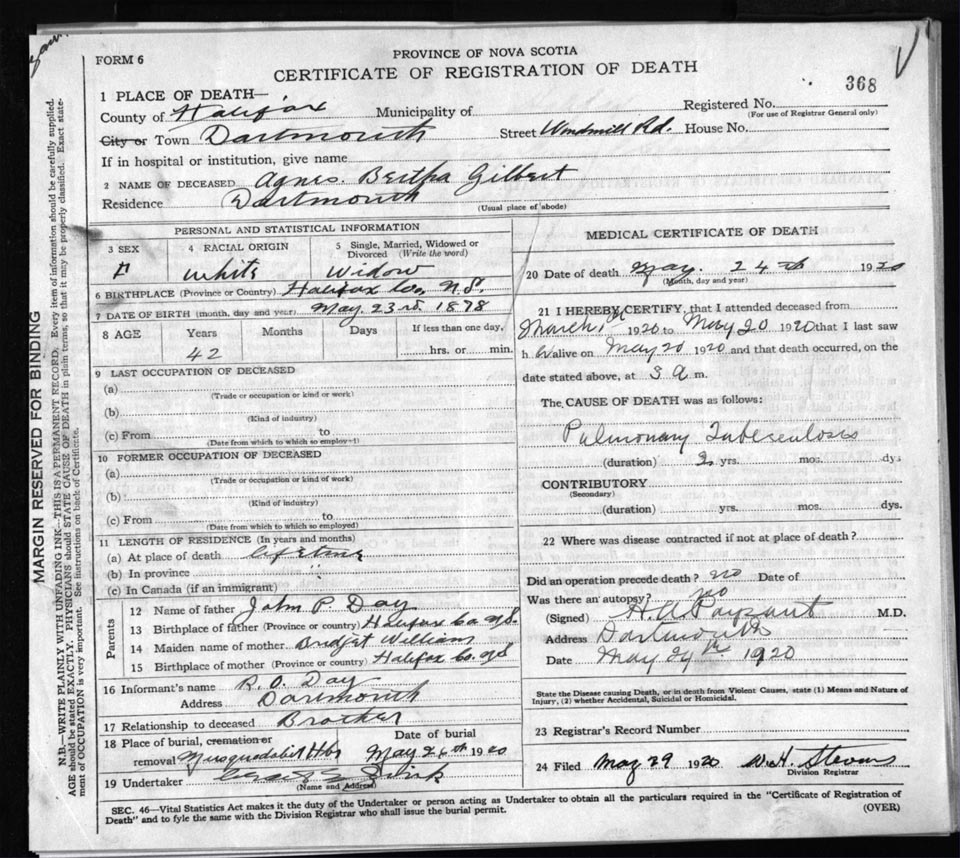 FORM 6
PROVINCE OF NOVA SCOTIA
CERTIFICATE OF REGISTRATION OF DEATH
368
1 PLACE OF DEATH—
County of Halifax Municipality of Registered No.
(For use of Registrar General only)
City or Town Dartmouth Street Windmill Rd. House No.
If in hospital or institution, give name
2 NAME OF DECEASED Agnes. Bertha Gilbert
Residence Dartmouth (Usual place of abode)
PERSONAL AND STATISTICAL INFORMATION
3 SEX 4 RACIAL ORIGIN 5 Single, Married, Widowed or Divorced (Write the word)
F white Widow
6 BIRTHPLACE (Province or Country) Halifax Co, N.S.
7 DATE OF BIRTH (month, day and year) May 23rd 1878
8 AGE Years Months Days If less than one day,
42 hrs. or min.
9 LAST OCCUPATION OF DECEASED
(a)
(Trade or occupation or kind or work)
(b)
(Kind of industry)
(c) From to
(Date from which to which so employ
10 FORMER OCCUPATION OF DECEASED
(a)
(Trade or occupation or kind of work)
(b)
(Kind of industry)
(c) From to
(Date from which to which so employed)
11 LENGTH OF RESIDENCE (In years and months)
(a) At place of death lifetime
(b) In province "
(c) In Canada (if an immigrant)
Parents
12 Name of father John P. Day
13 Birthplace of father (Province or country) Halifax Co. N.S.
14 Maiden name of mother Bridjet William
15 Birthplace of mother (Province or country) Halifax Co. N.S
16 Informant's name R. O. Day
Address Dartmouth
17 Relationship to deceased Brother
18 Place of burial, cremation or Date of burial
removal Musquodobit Hbr May 26th 1920
19 Undertaker
(Name and Address)
MEDICAL CERTIFICATE OF DEATH
20 Date of death May. 24th 1920
(Month, day and year)
21 I HEREBY CERTIFY, that I attended deceased from
March 1st 1920 to May 20 1920 that I last saw
h er alive on May 20 1920 and that death occurred, on the
date stated above, at 3 a m.
The CAUSE OF DEATH was as follows:
Pulmonary Tuberculosis
(duration) yrs. mos. dys
CONTRIBUTORY
(Secondary)
(duration) yrs. mos. dys.
22 Where was disease contracted if not at place of death?
Did an operation precede death? no Date of
Was there an autopsy? no
(Signed) H. A. Payzant M.D.
Address Dartmouth
Date May 24th 1920
State the Disease causing Death, or in death from Violent Causes, state (1) Means and Nature of
Injury, (2) whether Accidental, Suicidal or Homicidal.
23 Registrar's Record Number
24 Filed May 29 1920 W. H. Stevens
Division Registrar
SEC. 46—Vital Statistics Act makes it the duty of the Undertaker or person acting as Undertaker to obtain all the particulars required in the "Certificate of Registration of
Death" and to fyle the same with the Division Registrar who shall issue the burial permit. (OVER)
MARGIN RESERVED FOR BINDING
N.B.—WRITE PLAINLY WITH UNFADING INK—THIS IS A PERMANENT RECORD. Every item of information should be carefully supplied.
AGE should be stated EXACTLY. PHYSICIANS should STATE CAUSE OF DEATH in plain terms, so that it may be properly classified. Exact state-
ment of OCCUPATION is very important. See instructions on back of Certificate.